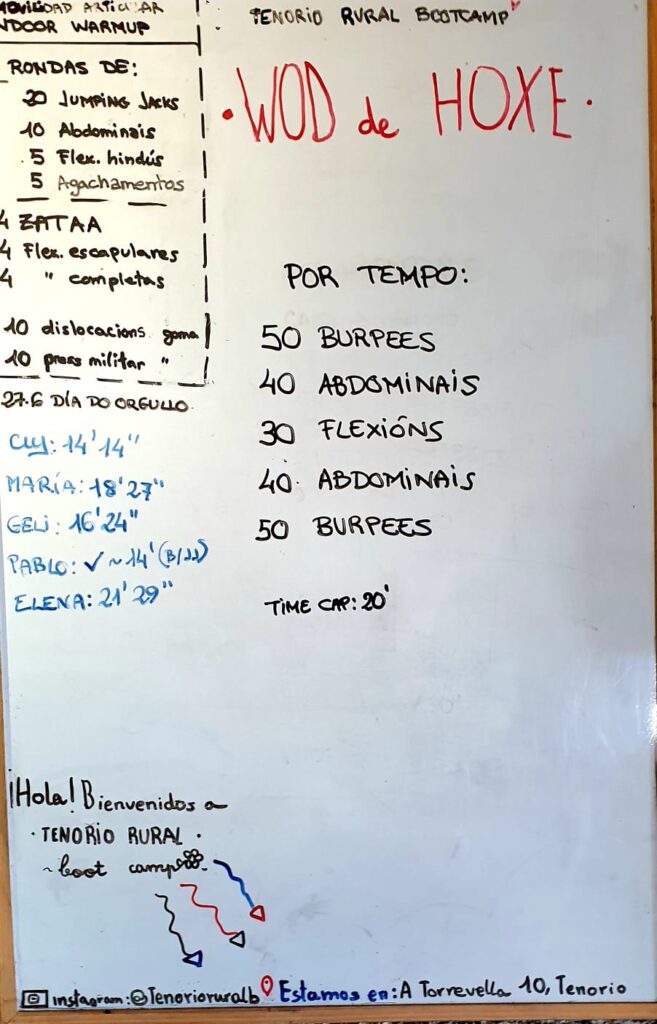 MOVILIDAD ARTICULAR
INDOOR WARMUP
RONDAS DE:
20 JUMPING JACKS
10 Abdominais
5 Flex. hindús
5 Agachamentos
4 ZATAA
4 Flex. escapulares
4 " completas
10 dislocacions goma
10 press militar "
27.6 DÍA DO ORGULLO
14'14"
MARÍA: 18'27"
GELI: 16'24"
PABLO: ✓ ~14' (B/11)
ELENA: 21'29"
TENORIO RURAL BOOTCAMP
· WOD de HOXE ·
POR TEMPO:
50 BURPEES
40 ABDOMINAIS
30 FLEXIÓNS
40 ABDOMINAIS
50 BURPEES
TIME CAP: 20'
¡Hola! Bienvenidos a
· TENORIO RURAL ·
~ boot camp ~
instagram: @Tenorioruralb
Estamos en: A Torrevella 10, Tenorio